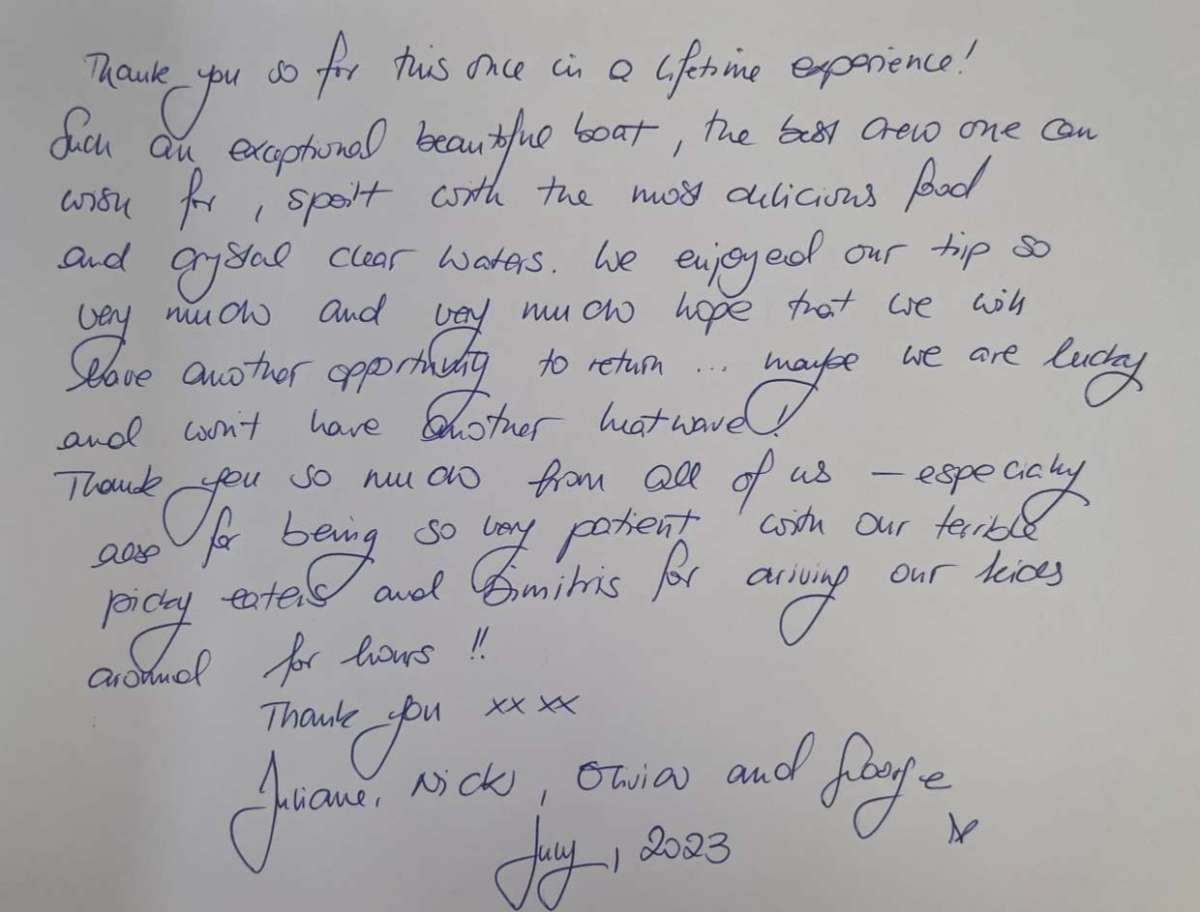 Thank you so for this once in a lifetime experience!
Such an exceptional beautiful boat, the best crew one can
wish for, spoilt with the most delicious food
and crystal clear waters. We enjoyed our trip so
very much and very much hope that we will
have another opportunity to return ... maybe we are lucky
and won't have another heatwave!
Thank you so much from all of us – especially
also for being so very patient with our terrible
picky eaters and Dimitris for driving our kids
around for hours !!
Thank you xx xx
Juliane, Nick, Olivia and George
x
July, 2023